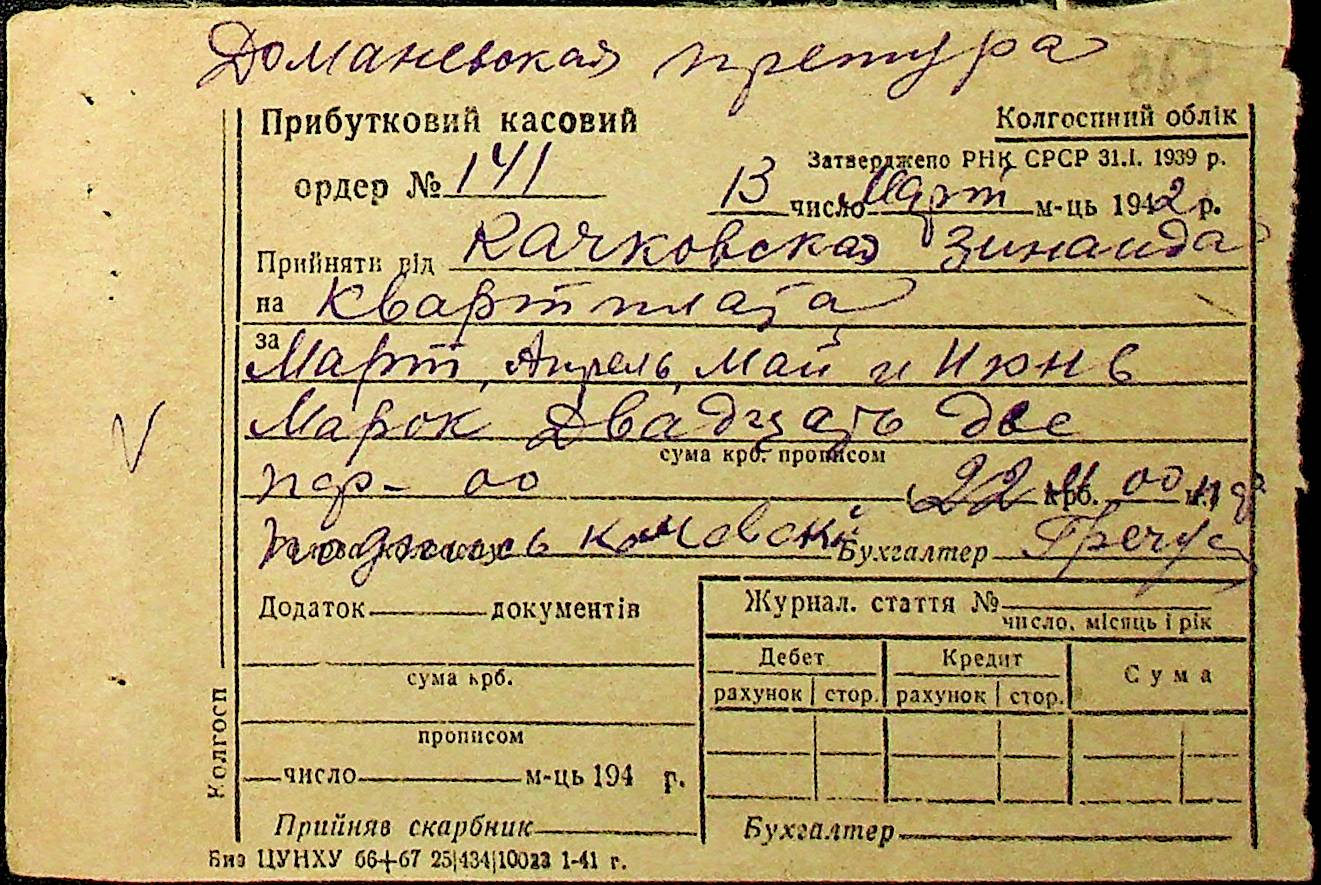 Доманевская претура
667
Прибутковий касовий
Колгоспний облік
Затверджено РНК СРСР 31.I. 1939 р.
ордер № 141
13 число Март м-ць 1942 р.
Прийняти від Качковская Зинаида
на Квартплата
за
Март, Апрель, Май и Июнь
Марок Двадцать две
сума крб. прописом
пф- 00 (22 крб. 00
Подпись Бухгалтер Гречус
Додаток документів
Журнал. стаття №
число, місяць і рік
сума крб.
Дебет Кредит Сума
рахунок стор. рахунок стор.
прописом
число м-ць 194 р.
Прийняв скарбник
Бухгалтер
Колгосп
Биз ЦУНХУ 66+67 25|434|10023 1-41 г.